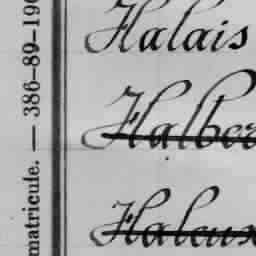 Halais
Halber
Haleux
matricule. — 386-89-190